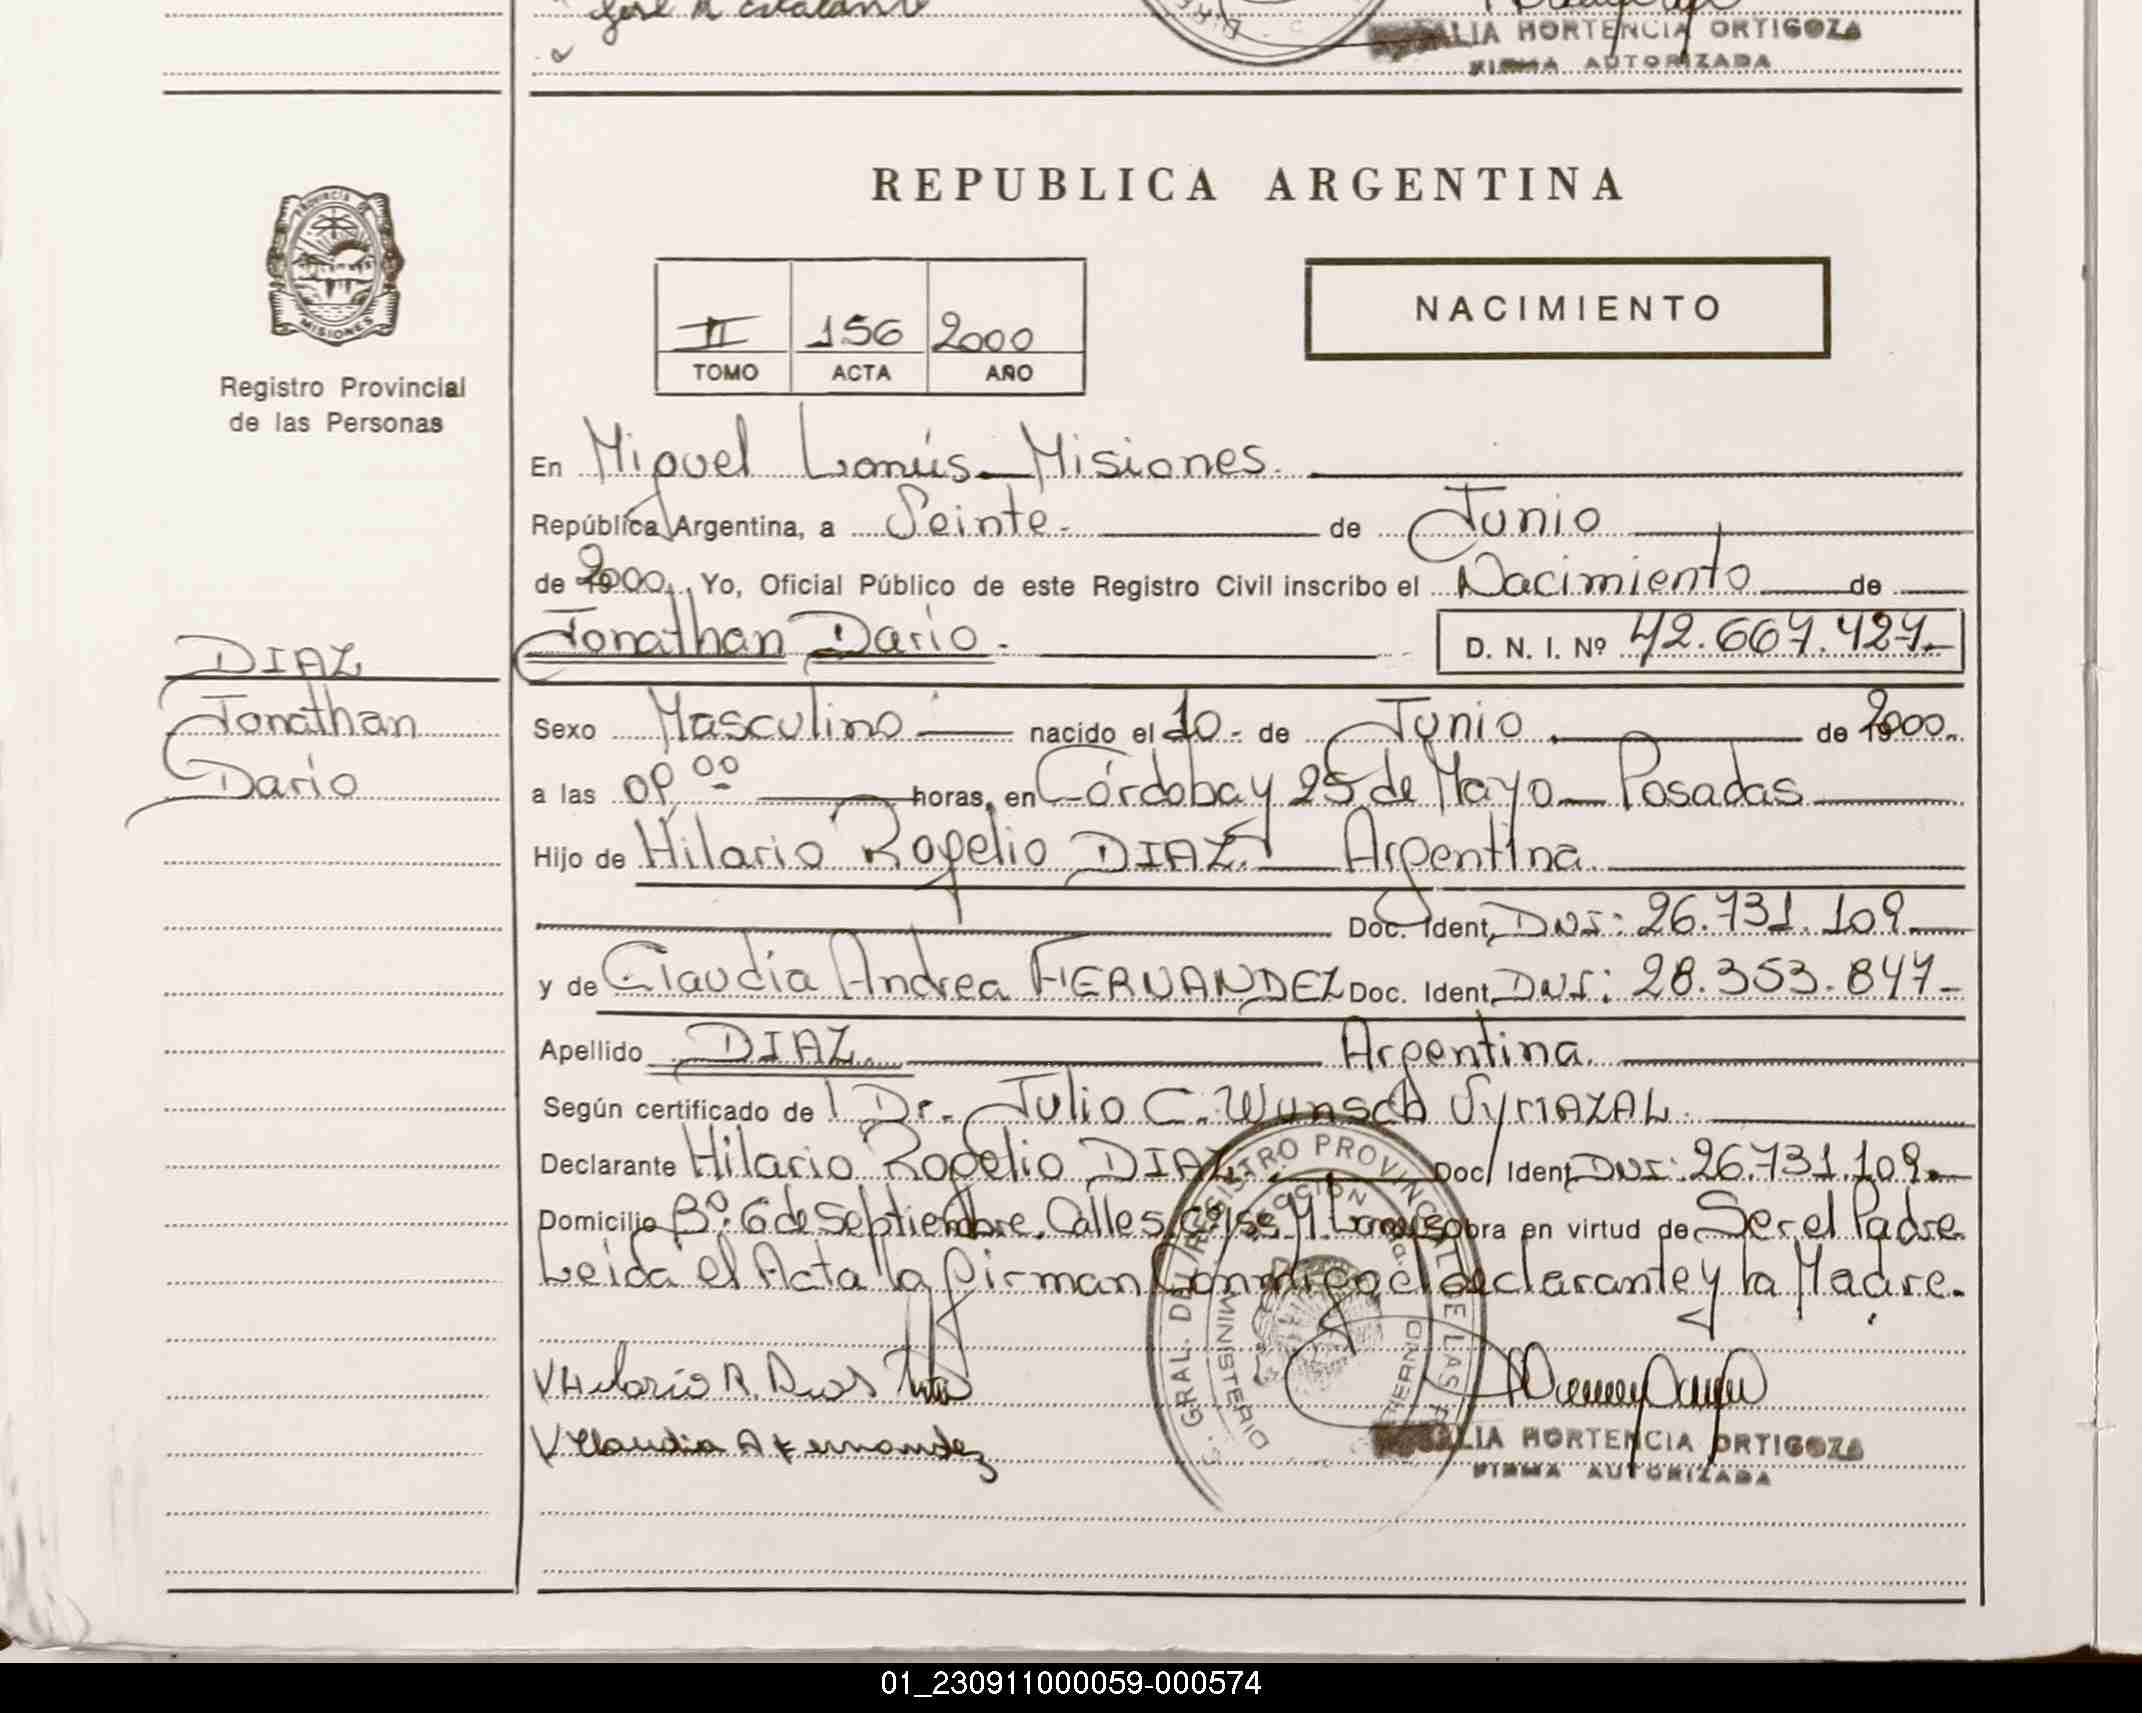 José R
ALIA HORTENCIA ORTIGOZA
FIRMA AUTORIZADA
PROVINCIA DE
MISIONES
Registro Provincial
de las Personas
REPUBLICA ARGENTINA
II 156 2000
TOMO ACTA AÑO
NACIMIENTO
En Miguel Lanús - Misiones.
República Argentina, a Veinte. de Junio
de 2000. Yo, Oficial Público de este Registro Civil inscribo el Nacimiento de
Jonathan Dario. D. N. I. Nº 42.667.427.-
DIAZ
Jonathan
Dario
Sexo Masculino nacido el 10- de Junio. de 2000.
a las 09,00 horas, en Córdoba y 25 de Mayo - Posadas
Hijo de Hilario Rogelio DIAZ. Argentina.
Doc. Ident. DNI: 26.731.109
y de Claudia Andrea FERNANDEZ Doc. Ident. DNI: 28.353.847-
Apellido DIAZ. Argentina.
Según certificado de l Dr. Julio C. Wunsch SYRIAZAL.
Declarante Hilario Rogelio DIAZ. Doc. Ident. DNI: 26.731.109.
Domicilio Bº. 6 de Septiembre. Calles, M. Lanús obra en virtud de Ser el Padre.
Leida el Acta la firman Conmigo el declarante y la Madre.
GRAL. DEL REGISTRO PROVINCIAL DE LAS P
MINISTERIO
V Hilario R. Dias
V Claudia A Fernandez
ALIA HORTENCIA ORTIGOZA
FIRMA AUTORIZADA
01_230911000059-000574